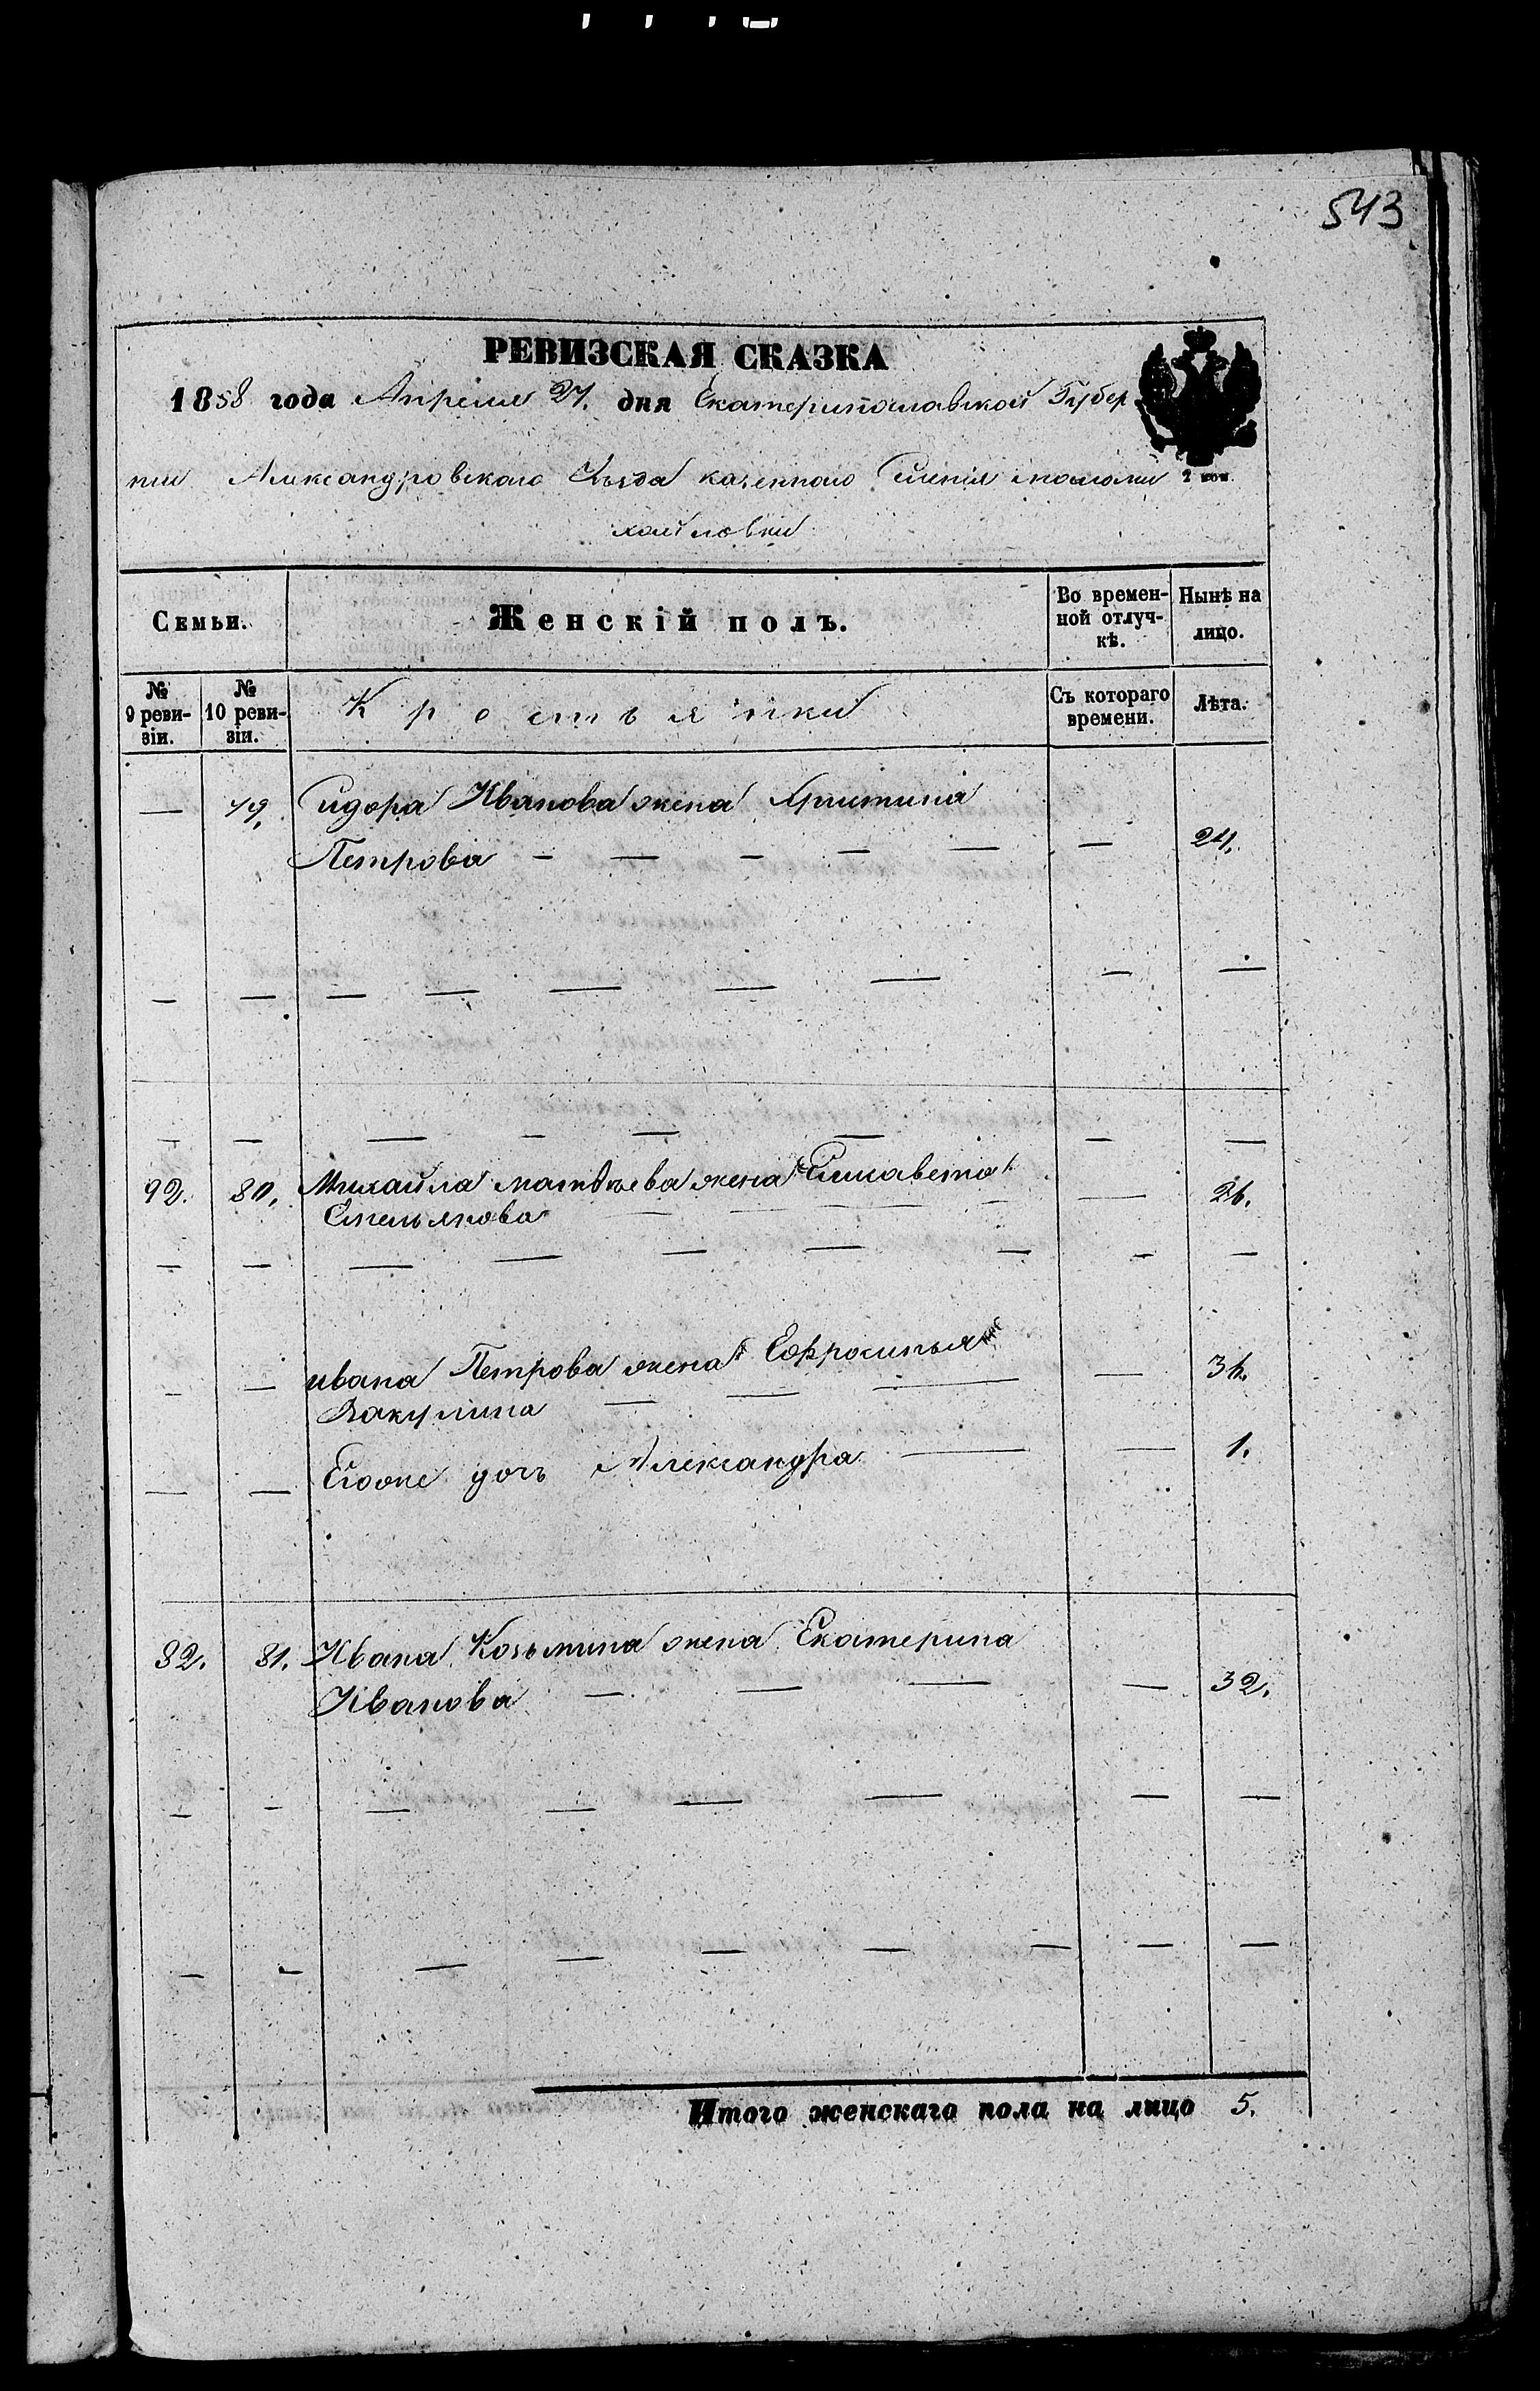 543
РЕВИЗСКАЯ СКАЗКА
1858 года Апреля 27. дня Екатеринославской Губер
нии Александровского Уѣзда казенного Имения
2 коп.
Семьи. Женскій полъ. Во времен-ной отлуч-кѣ. Нынѣ на лицо.
№ 9 реви-зіи. № 10 реви-зіи. Крестьянки Съ котораго времени. Лѣта.
— 79. Сидора Иванова жена Христина
Петрова — — — — — — 24.
— — — — — — — — —
— — — — — — — —
92. 80. Михайла Матвѣева жена Елисавета
Емельянова — — — — — 26.
— — — — — — — — —
— — Ивана Петрова жена Ефросинья
Вакулина — — — — 36.
— — Егоже дочь Александра — — 1.
82. 81. Ивана Козьмина жена Екатерина
Иванова — — — — 32.
— — — — — — — —
— — — — — — — — —
Итого женскаго пола на лицо 5.